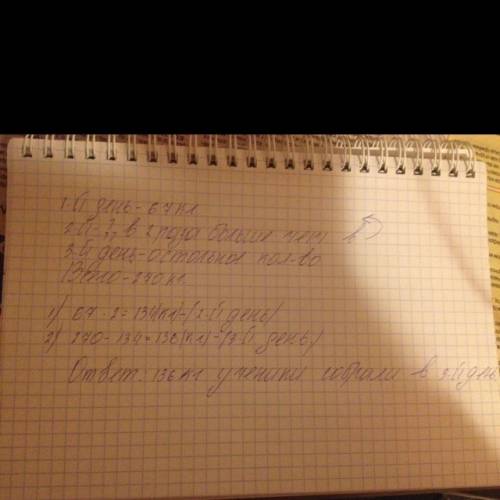 1-й день - 67 кг
2-й - ?, в 2 раза больше чем в
3-й день - остальное кол-во
Всего - 270 кг
1) 67 · 2 = 134(кг) - (2-й день)
2) 270 - 134 = 136(кг) - (3-й день)
Ответ: 136 кг ученики собрали в 3-й день